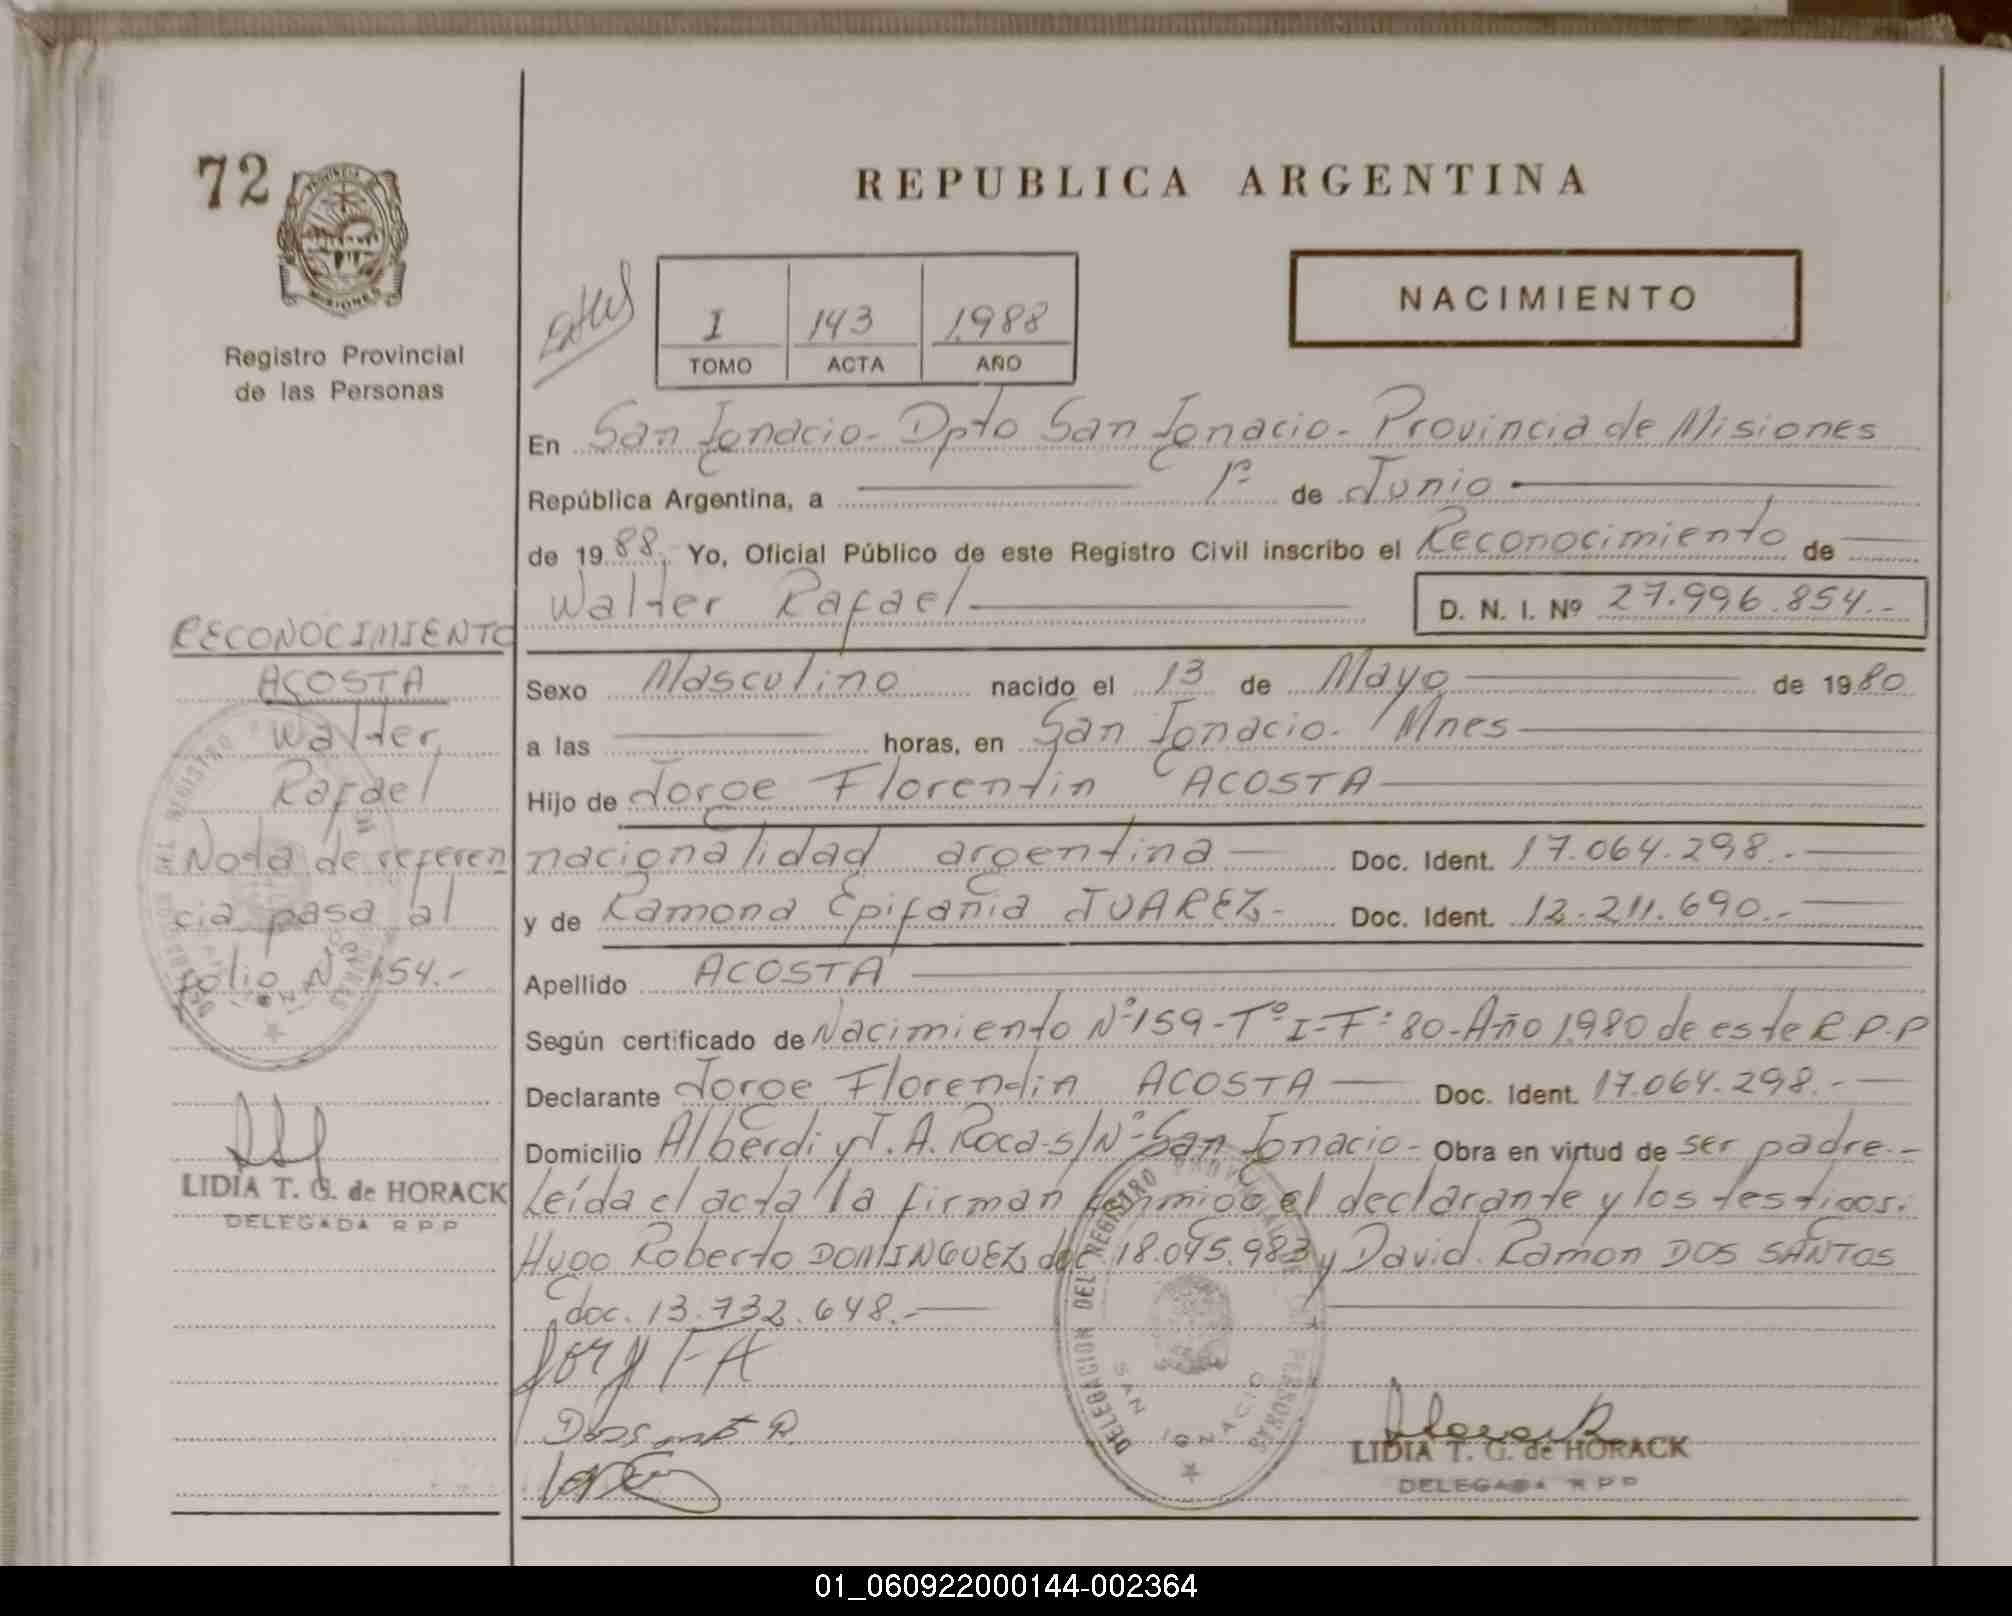 72
Registro Provincial
de las Personas
REPUBLICA ARGENTINA
I 143 1.988
TOMO ACTA AÑO
NACIMIENTO
En San Ignacio - Dpto San Ignacio - Provincia de Misiones
República Argentina, a 1º de Junio
de 19 88. Yo, Oficial Público de este Registro Civil inscribo el Reconocimiento de
Walter Rafael
D. N. I. Nº 27.996.854.-
Sexo Masculino nacido el 13 de Mayo de 1980
a las horas, en San Ignacio. Mnes
Hijo de Jorge Florentin ACOSTA
nacionalidad argentina Doc. Ident. 17.064.298.-
y de Ramona Epifania JUAREZ- Doc. Ident. 12.211.690.-
Apellido ACOSTA
Según certificado de Nacimiento Nº159-Tº I-Fº 80-Año 1.980 de este R.P.P
Declarante Jorge Florentin ACOSTA Doc. Ident. 17.064.298.-
Domicilio Alberdi y J. A. Roca-s/Nº San Ignacio- Obra en virtud de ser padre.-
Leída el acta la firman conmigo el declarante y los testigos:
Hugo Roberto DOMINGUEZ doc 18.045.983 y David Ramon DOS SANTOS
doc. 13.732.648.-
RECONOCIMIENTO
ACOSTA
Walter
Rafael
Nota de referen
cia pasa al
folio Nº 154.-
LIDIA T. G. de HORACK
DELEGADA R P P
DELEGACION DEL REGISTRO PROVINCIAL DE LAS PERSONAS
SAN IGNACIO
LIDIA T. G. de HORACK
DELEGADA R P P
01_060922000144-002364